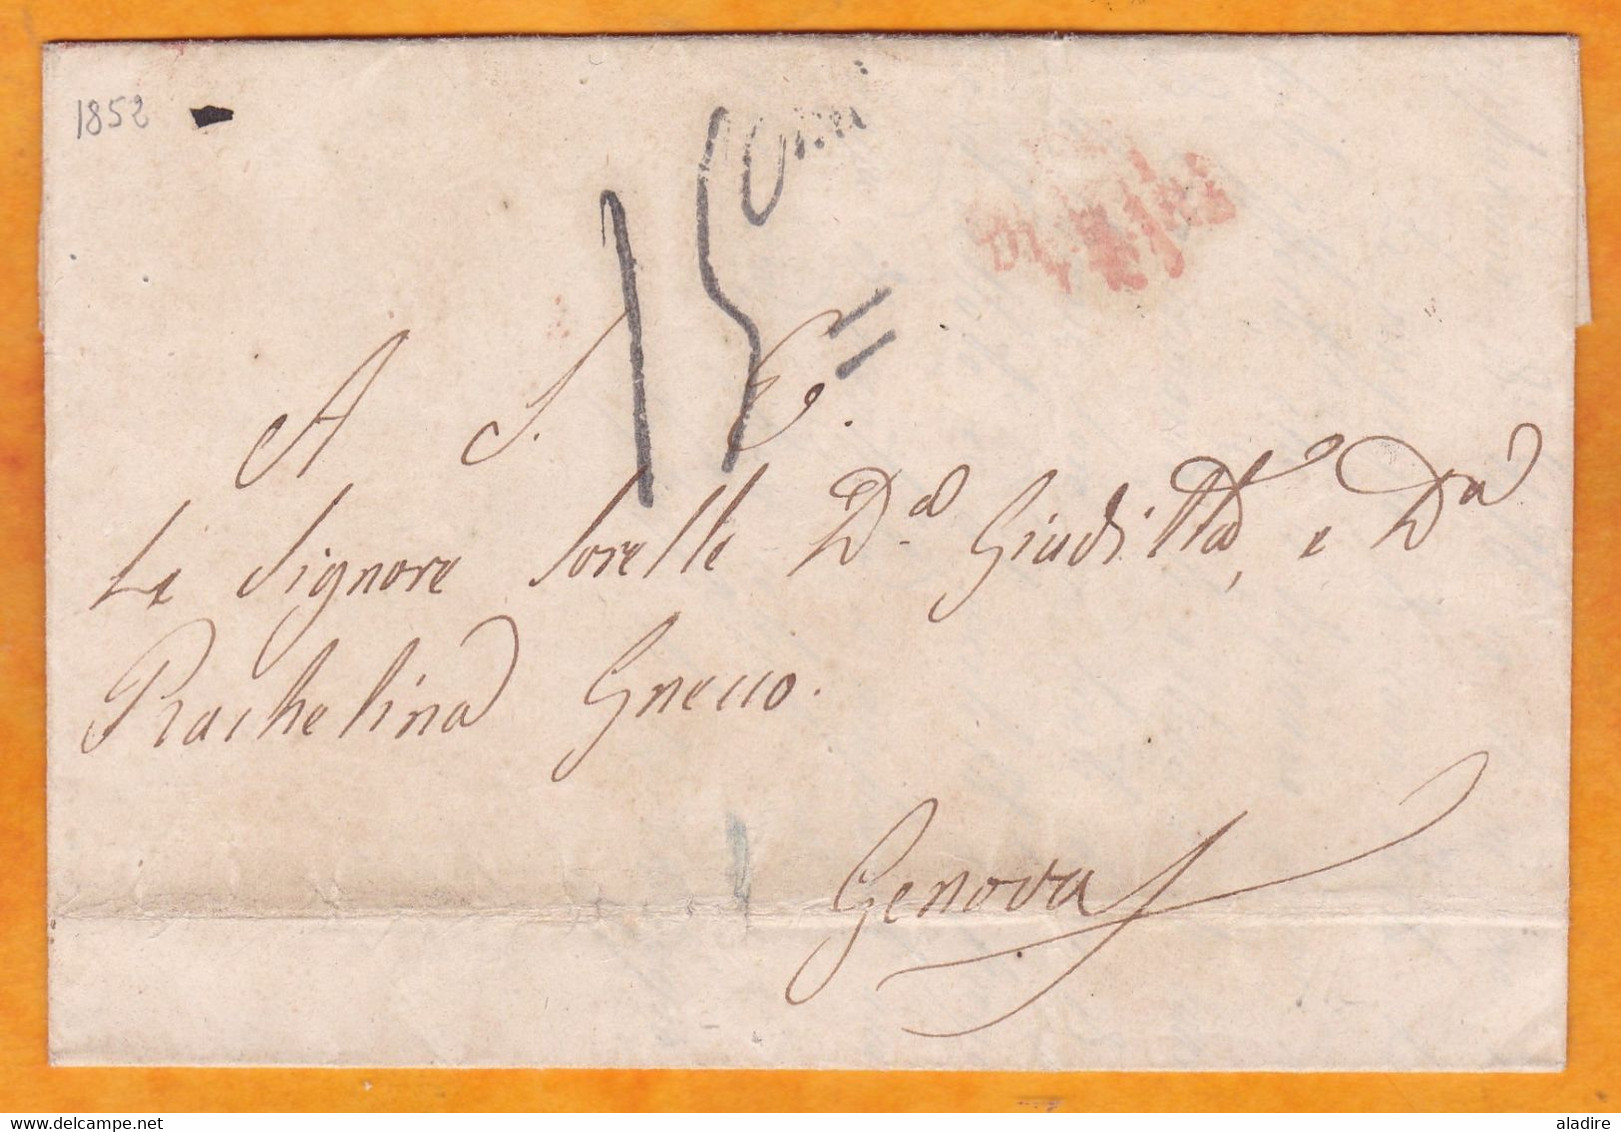 1852
15
A S. E.
Le Signore Sorelle D.a Giuditta, e Da
Rachelina Gnecco.
Genova
delcampe.net
aladire